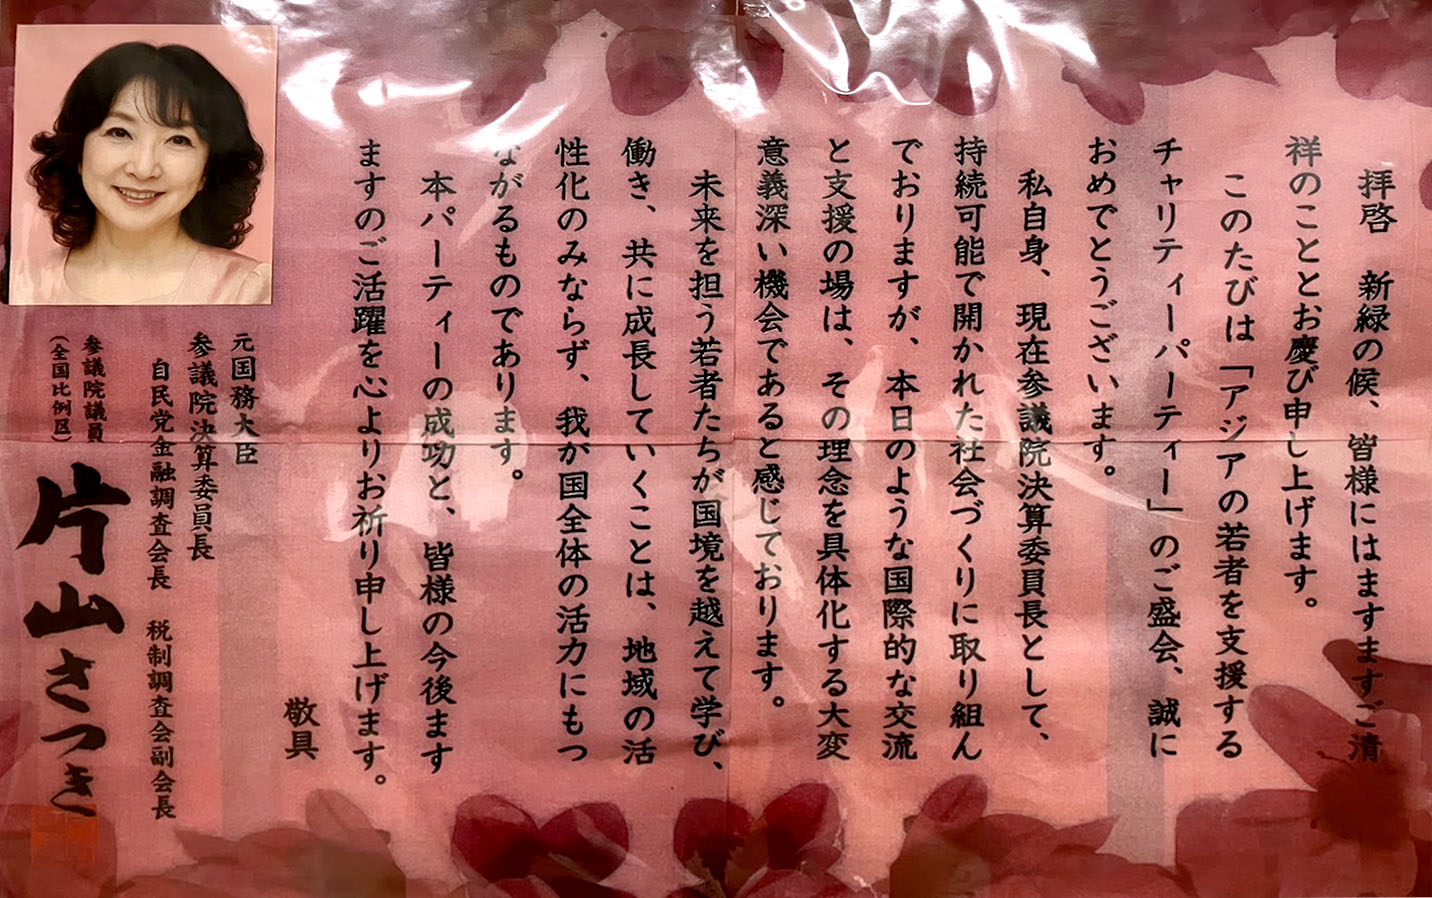 拝啓　新緑の候、皆様にはますますご清
祥のこととお慶び申し上げます。
このたびは「アジアの若者を支援する
チャリティーパーティー」のご盛会、誠に
おめでとうございます。
私自身、現在参議院決算委員長として、
持続可能で開かれた社会づくりに取り組ん
でおりますが、本日のような国際的な交流
と支援の場は、その理念を具体化する大変
意義深い機会であると感じております。
未来を担う若者たちが国境を越えて学び、
働き、共に成長していくことは、地域の活
性化のみならず、我が国全体の活力にもつ
ながるものであります。
本パーティーの成功と、皆様の今後ます
ますのご活躍を心よりお祈り申し上げます。
敬具
元国務大臣
参議院決算委員長
自民党金融調査会長　税制調査会副会長
参議院議員
（全国比例区）
片山さつき